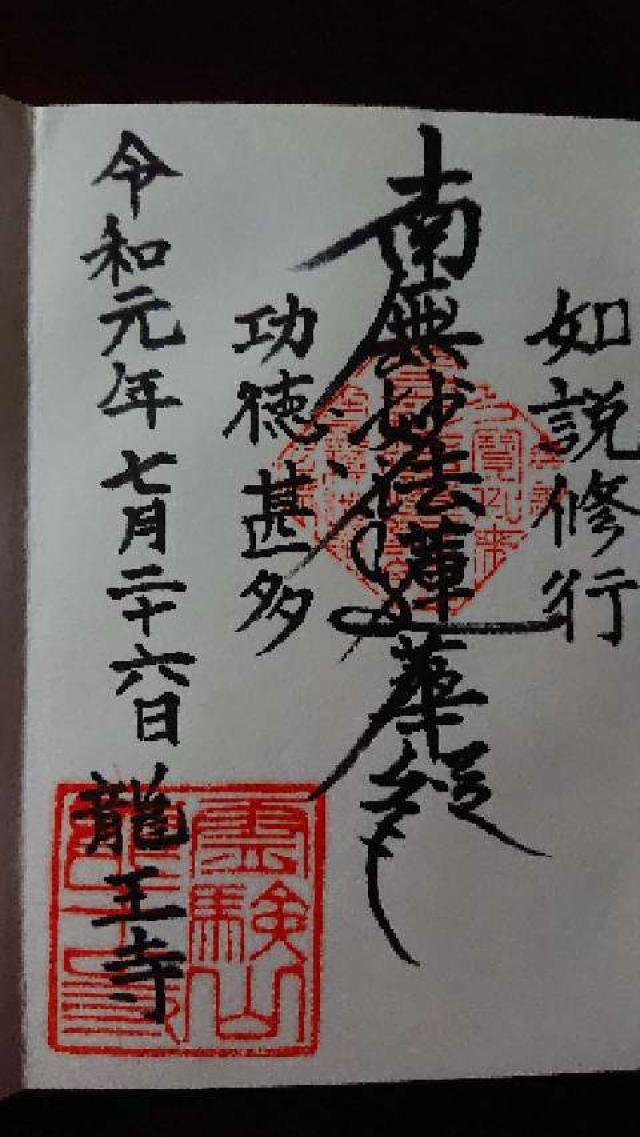 如説修行
南無妙法蓮華経
功徳甚多
令和元年七月二十六日 龍王寺
霊験山